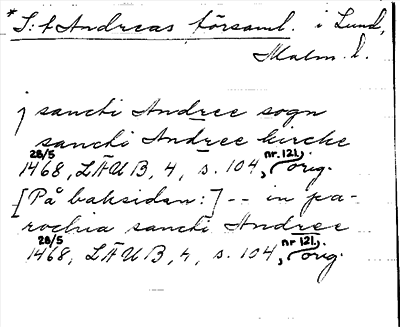 *S:t Andreas församl. i Lund,
Malm. l.
j sancti Andree sogn
sancti Andree kirche
28/5 1468, LÄUB, 4, s. 104, nr. 121, orig.
[På baksidan:] -- in pa-
rochia sancti Andree
28/5 1468, LÄUB, 4, s. 104, nr 121, orig.